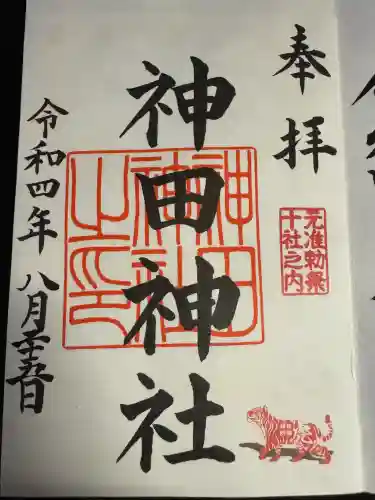 奉拝
元准勅祭
十社之内
神田神社
神田
神社
之印
令和四年 八月二十五日